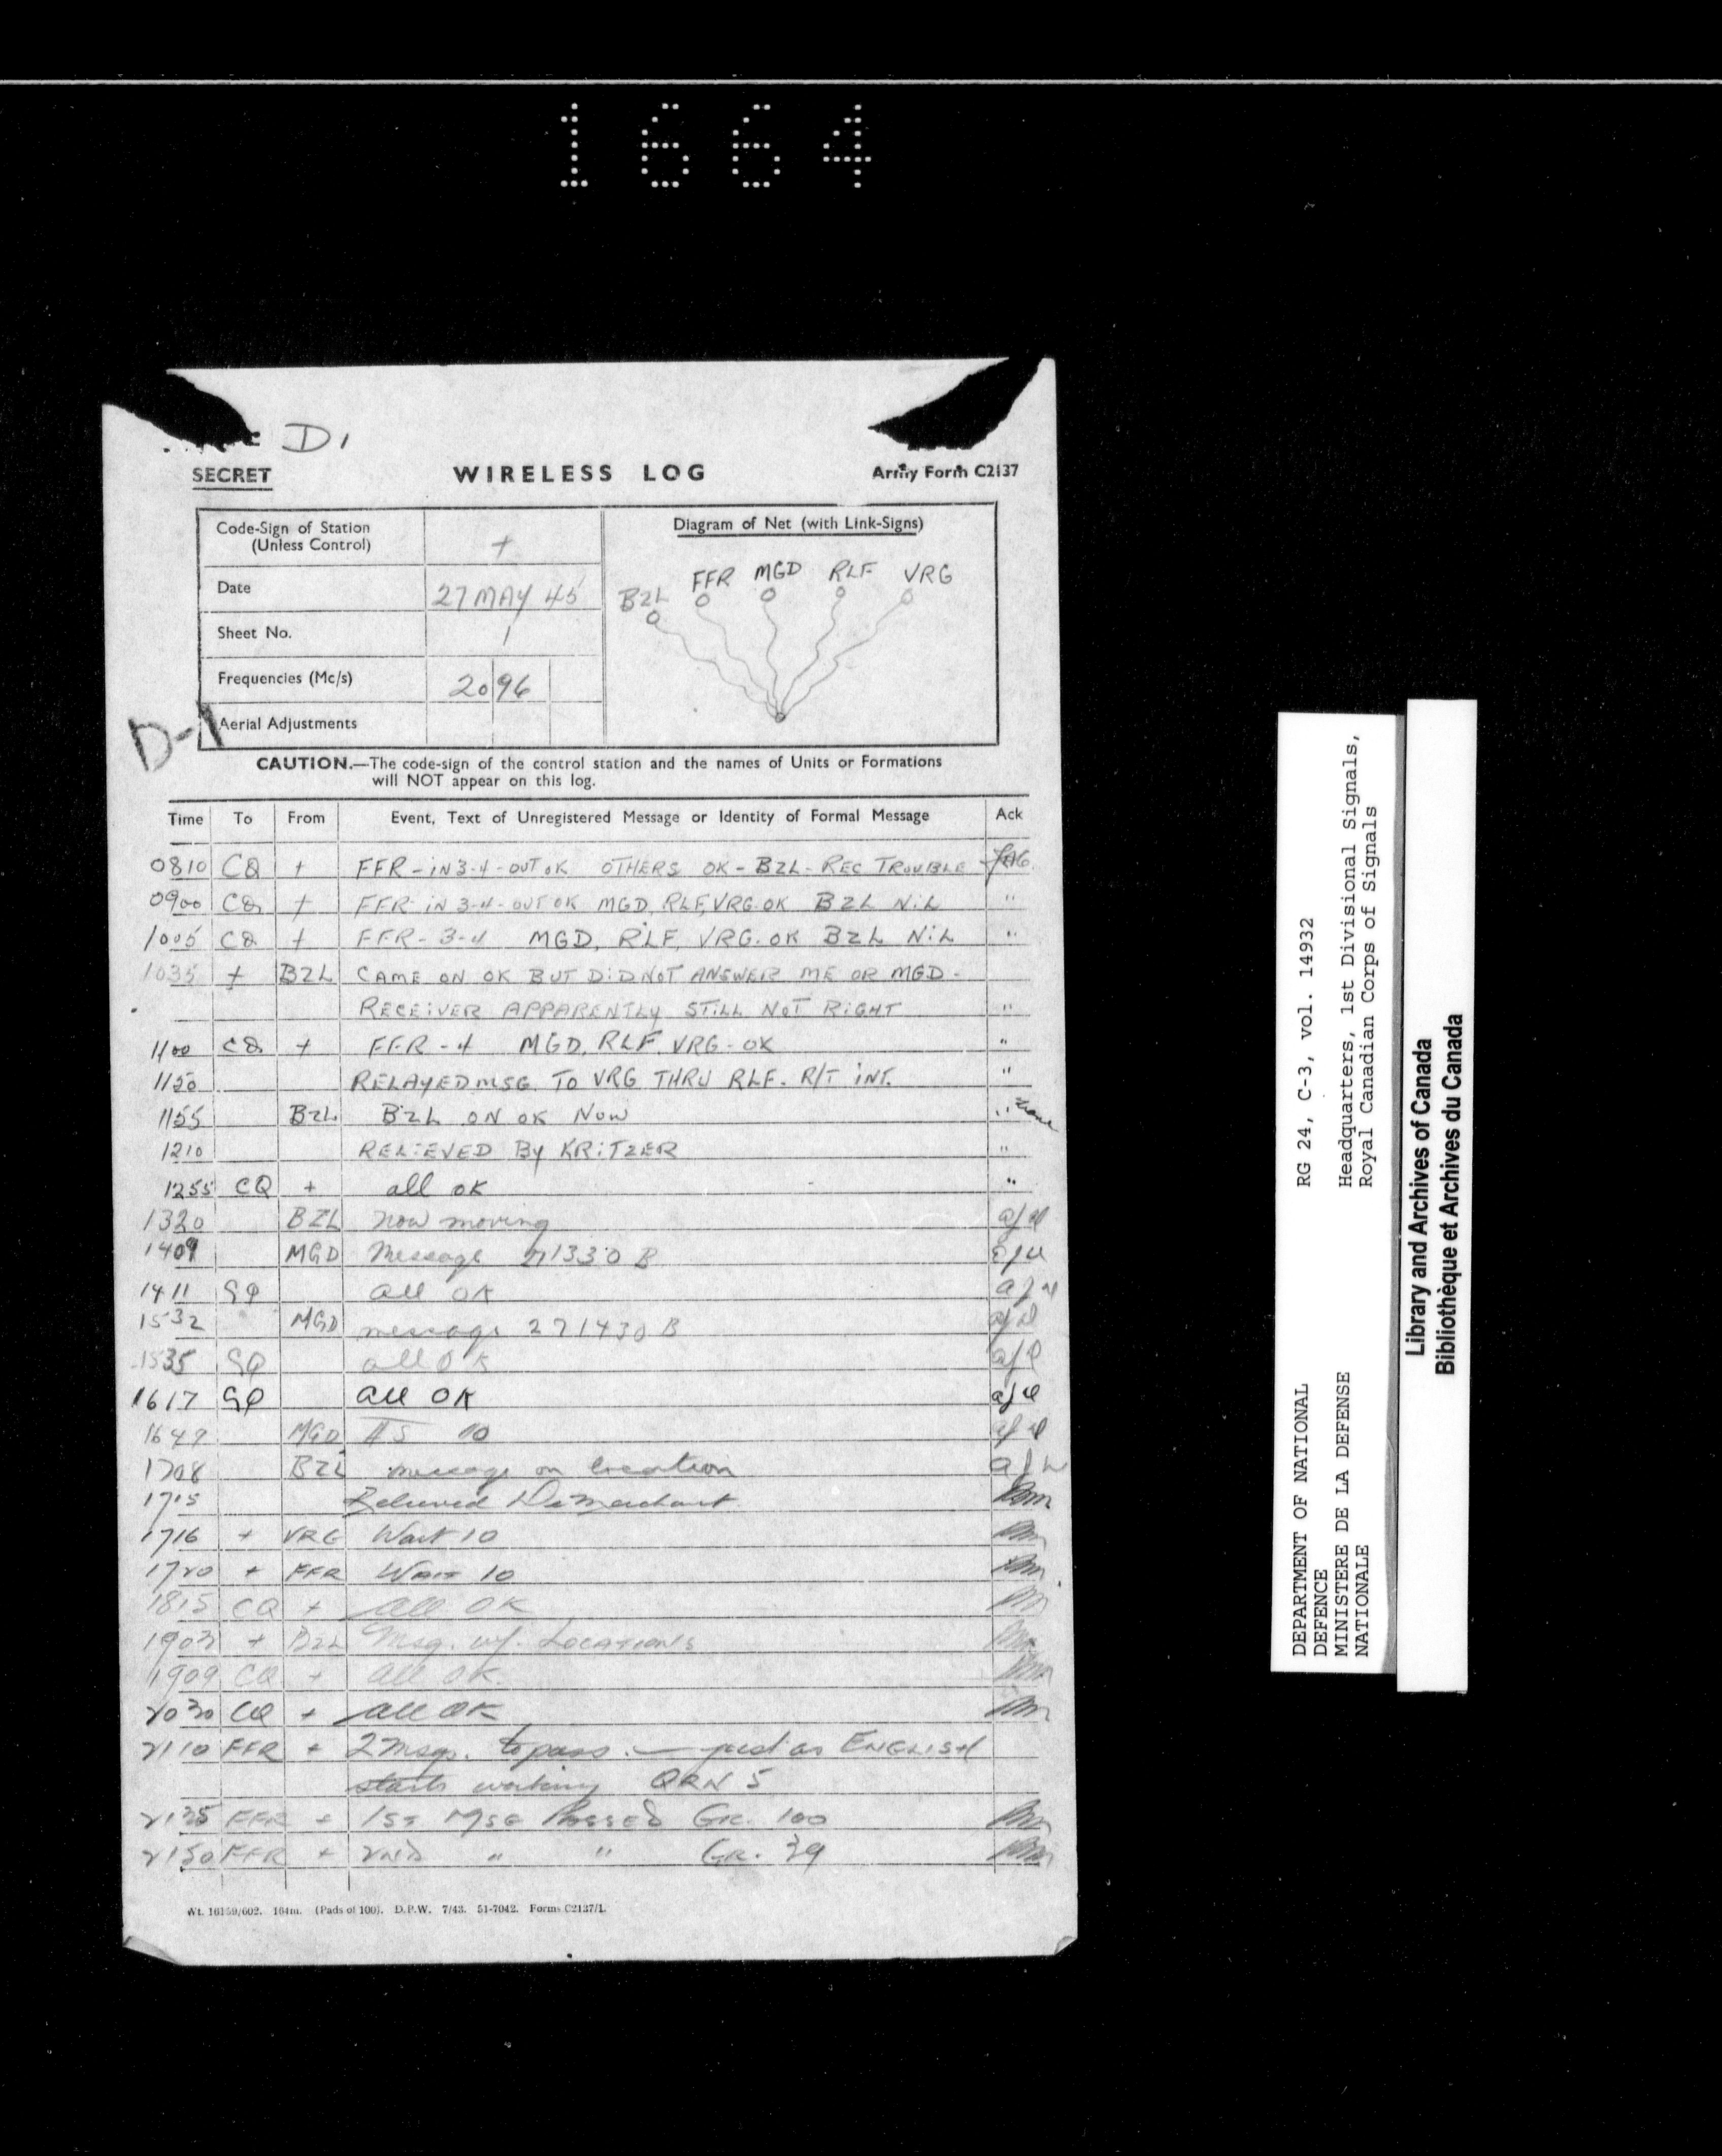 1664
D1
SECRET
WIRELESS LOG
Army Form C2137
Code-Sign of Station
(Unless Control)
+
Date
27 MAY 45
Sheet No.
1
Frequencies (Mc/s)
20 96
Aerial Adjustments
D-1
Diagram of Net (with Link-Signs)
BZL FFR MGD RLF VRG
CAUTION.—The code-sign of the control station and the names of Units or Formations
will NOT appear on this log.
Time To From Event, Text of Unregistered Message or Identity of Formal Message Ack
0810 CQ + FFR - IN 3-4 - OUT OK OTHERS OK - BZL - REC TROUBLE
0900 CQ + FFR IN 3-4 - OUT OK MGD, RLF, VRG. OK BZL NIL "
1005 CQ + FFR - 3-4 MGD, RLF, VRG. OK BZL NIL "
1035 + BZL CAME ON OK BUT DID NOT ANSWER ME OR MGD -
RECEIVER APPARENTLY STILL NOT RIGHT "
1100 CQ + FFR - 4 MGD, RLF, VRG - OK "
1120 RELAYED MSG. TO VRG THRU RLF. R/T INT. "
1155 BZL BZL ON OK NOW "
1210 RELIEVED BY KRITZER "
1255 CQ + all OK "
1320 BZL now moving
1409 MGD Message 271330 B
1411 CQ all OK
1532 MGD message 271430 B
1535 CQ all OK
1617 CQ all OK
1649 MGD 10
1708 BZL message on location
1715 Relieved DeMerchant
1716 + VRG Wait 10
1720 + FFR WAIT 10
1815 CQ + all OK
1903 + BZL Msg. w/. LOCATIONS
1909 CQ + all OK.
2030 CQ + all OK
2110 FFR + 2 msgs. to pass. — just as ENGLISH
starts working QRN 5
2135 FFR + 1ST MSG PASSED GR. 100
2150 FFR + 2ND " " GR. 39
Wt. 16159/602. 164m. (Pads of 100). D.P.W. 7/43. 51-7042. Forms C2137/1.
DEPARTMENT OF NATIONAL
DEFENCE
MINISTERE DE LA DEFENSE
NATIONALE
RG 24, C-3, vol. 14932
Headquarters, 1st Divisional Signals,
Royal Canadian Corps of Signals
Library and Archives of Canada
Bibliothèque et Archives du Canada